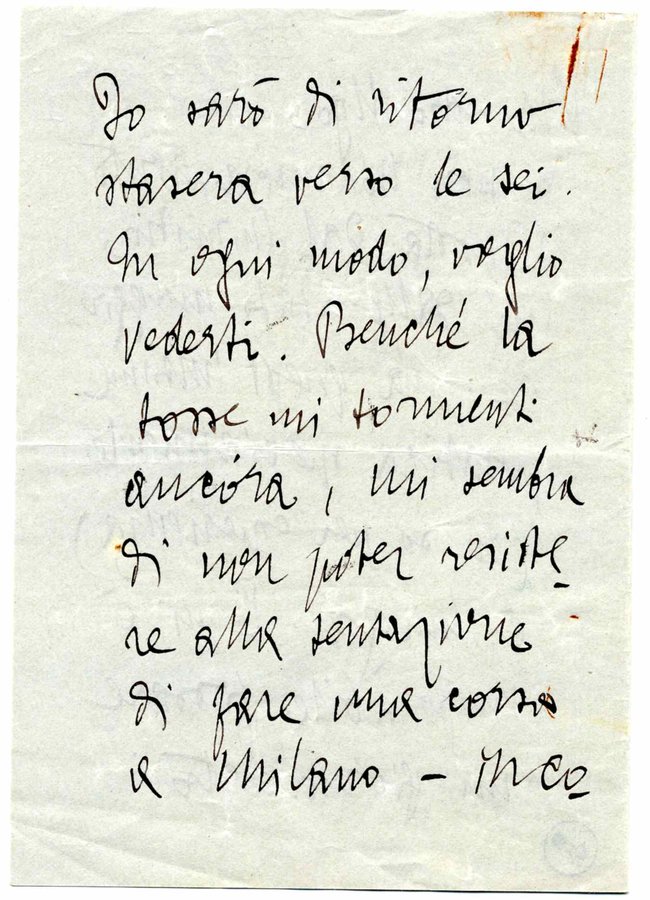 Io sarò di ritorno
stasera verso le sei.
In ogni modo, voglio
vederti. Benché la
tosse mi tormenti
ancóra, mi sembra
di non poter resiste_
re alla tentazione
di fare una corsa
a Milano – inco_